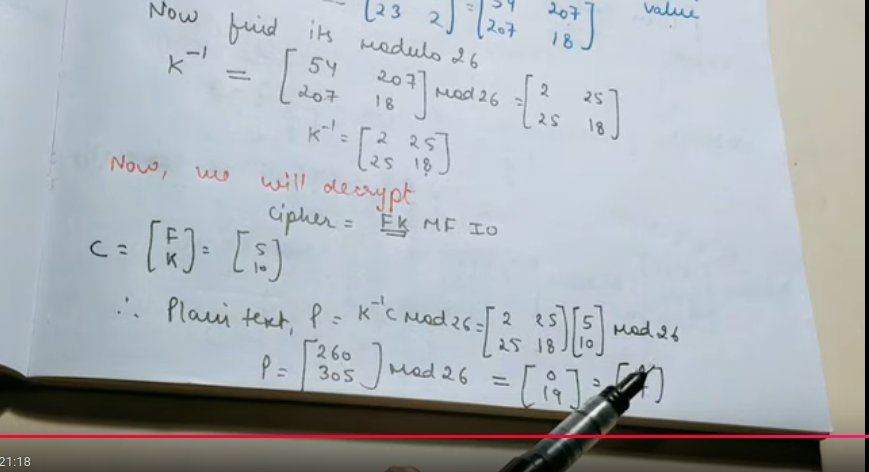 [23 2] = [54 207 207 18] value
Now find its modulo 26
K⁻¹ = [54 207 207 18] mod 26 = [2 25 25 18]
K⁻¹ = [2 25 25 18]
Now, we will decrypt
Cipher = FK MF IO
C = [F K] = [5 10]
∴ Plain text, P = K⁻¹C mod 26 = [2 25 25 18] [5 10] mod 26
P = [260 305] mod 26 = [0 19] =
21:18